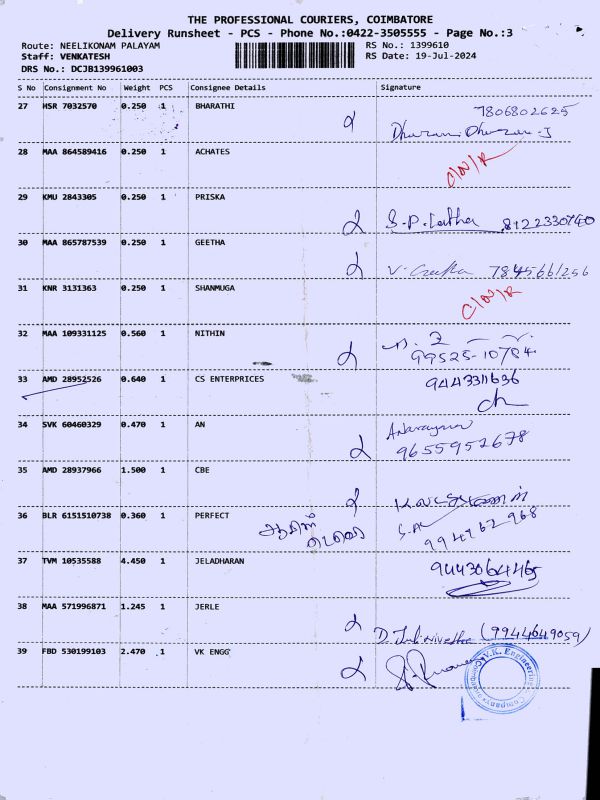 THE PROFESSIONAL COURIERS, COIMBATORE
Delivery Runsheet - PCS - Phone No.:0422-3505555 - Page No.:3
Route: NEELIKONAM PALAYAM RS No.: 1399610
Staff: VENKATESH RS Date: 19-Jul-2024
DRS No.: DCJB139961003
S No Consignment No Weight PCS Consignee Details Signature
27 MSR 7032570 0.250 1 BHARATHI 7806802625
28 MAA 864589416 0.250 1 ACHATES C/N/R
29 KMU 2843305 0.250 1 PRISKA S.P. Latha 8122330740
30 MAA 865787539 0.250 1 GEETHA V. Geetha 7845661256
31 KNR 3131363 0.250 1 SHANMUGA C/N/R
32 MAA 109331125 0.560 1 NITHIN 99525-10784
33 AMD 28952526 0.640 1 CS ENTERPRICES 9443311636
34 SVK 60460329 0.470 1 AN A Narayanan
9655952678
35 AMD 28937966 1.500 1 CBE
36 BLR 6151510738 0.360 1 PERFECT 994762 968
37 TVM 10535588 4.450 1 JELADHARAN 9443064465
38 MAA 571996871 1.245 1 JERLE (9944649059)
39 FBD 530199103 2.470 1 VK ENGG
V.K. Engineering